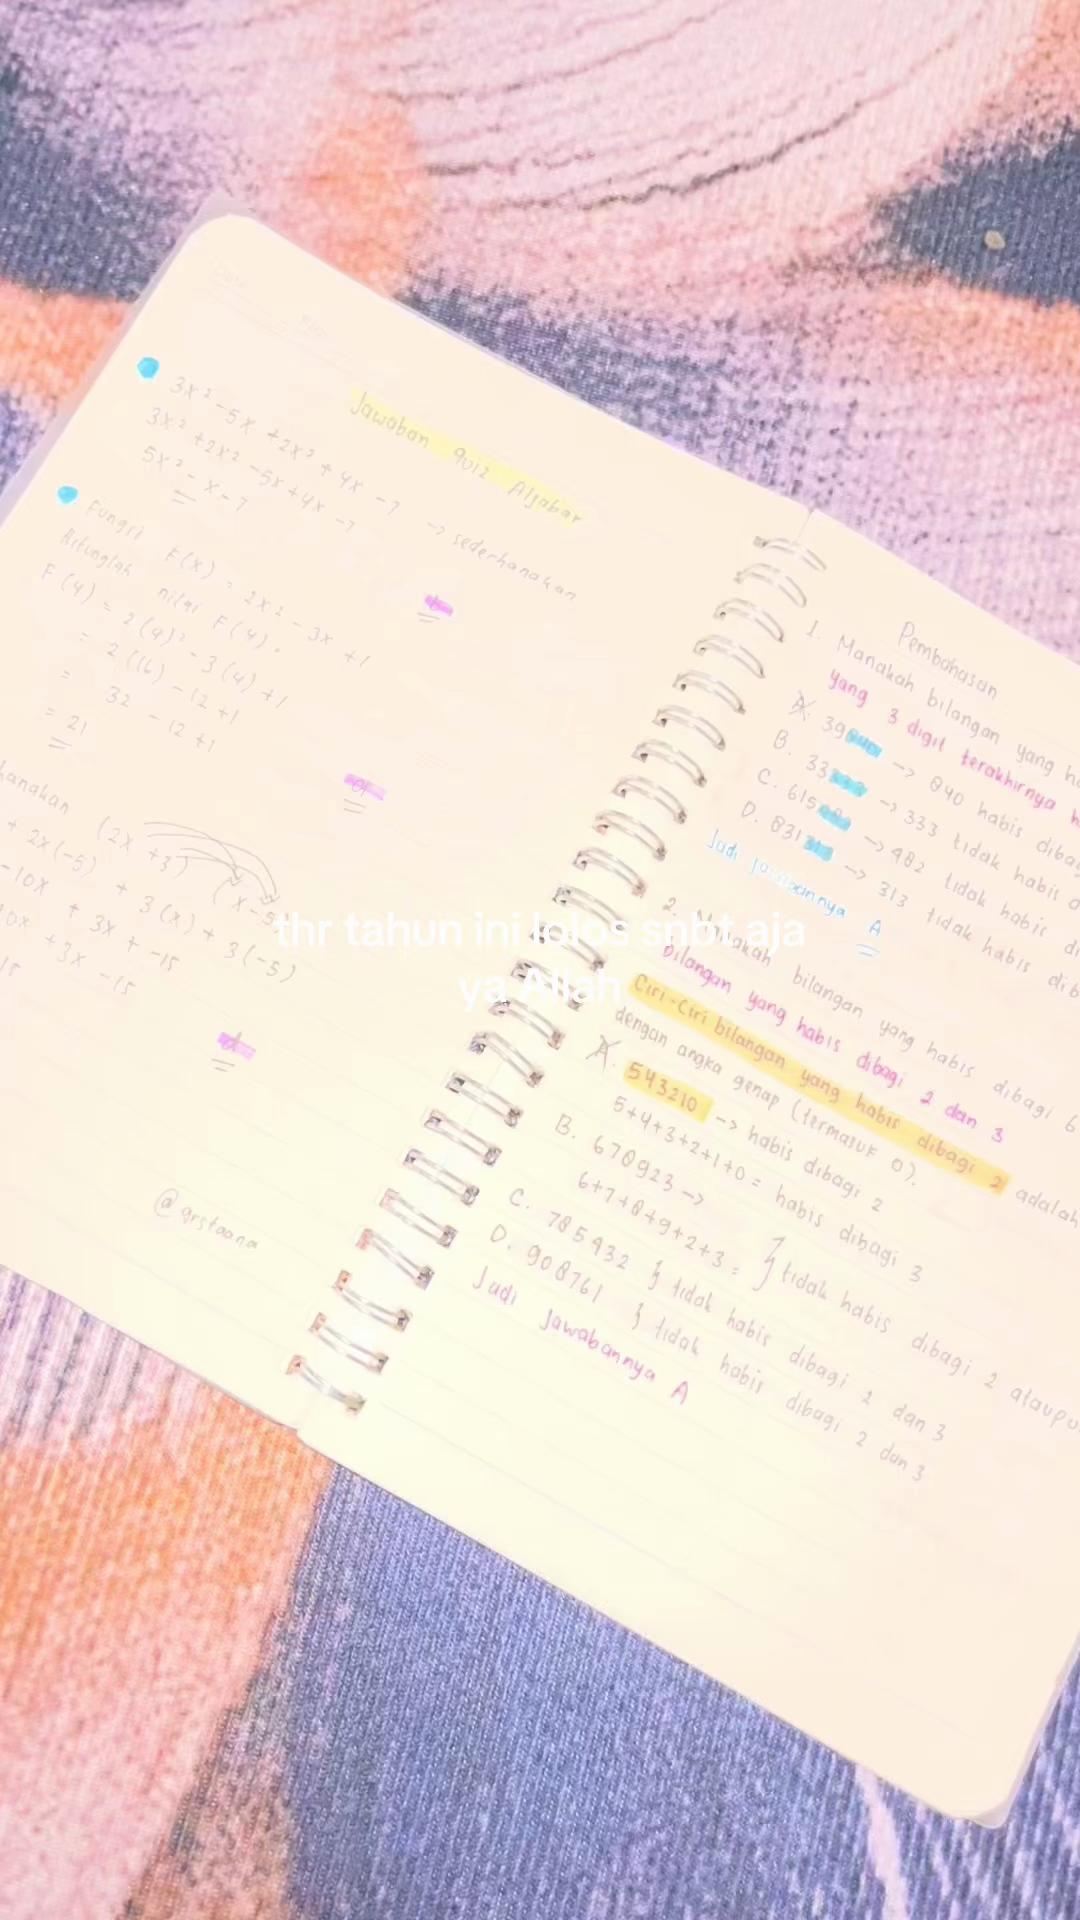 Jawaban quiz Aljabar
3x² - 5x + 2x² + 4x - 7 -> sederhanakan
3x² + 2x² - 5x + 4x - 7
5x² - x - 7
Fungsi F(x) = 2x² - 3x + 1
Hitunglah nilai F(4).
F(4) = 2(4)² - 3(4) + 1
= 2(16) - 12 + 1
= 32 - 12 + 1
= 21
hanakan (2x + 3) (x - 5
+ 2x(-5) + 3(x) + 3(-5)
-10x + 3x + -15
10x + 3x - 15
15
@arstaana
Pembahasan
1. Manakah bilangan yang ha
yang 3 digit terakhirnya h
A. 39840 -> 840 habis dibag
B. 33333 -> 333 tidak habis d
C. 615482 -> 482 tidak habis di
D. 831313 -> 313 tidak habis dib
Jadi jawabannya A
thr tahun ini lolos snbt aja
ya Allah
2. Manakah bilangan yang habis dibagi 6
Bilangan yang habis dibagi 2 dan 3
Ciri-Ciri bilangan yang habis dibagi 2 adalah
dengan angka genap (termasuk 0).
A. 543210 -> habis dibagi 2
5+4+3+2+1+0 = habis dibagi 3
B. 678923 ->
6+7+8+9+2+3 = } tidak habis dibagi 2 ataupu
C. 785432 } tidak habis dibagi 2 dan 3
D. 908761 } tidak habis dibagi 2 dan 3
Jadi Jawabannya A